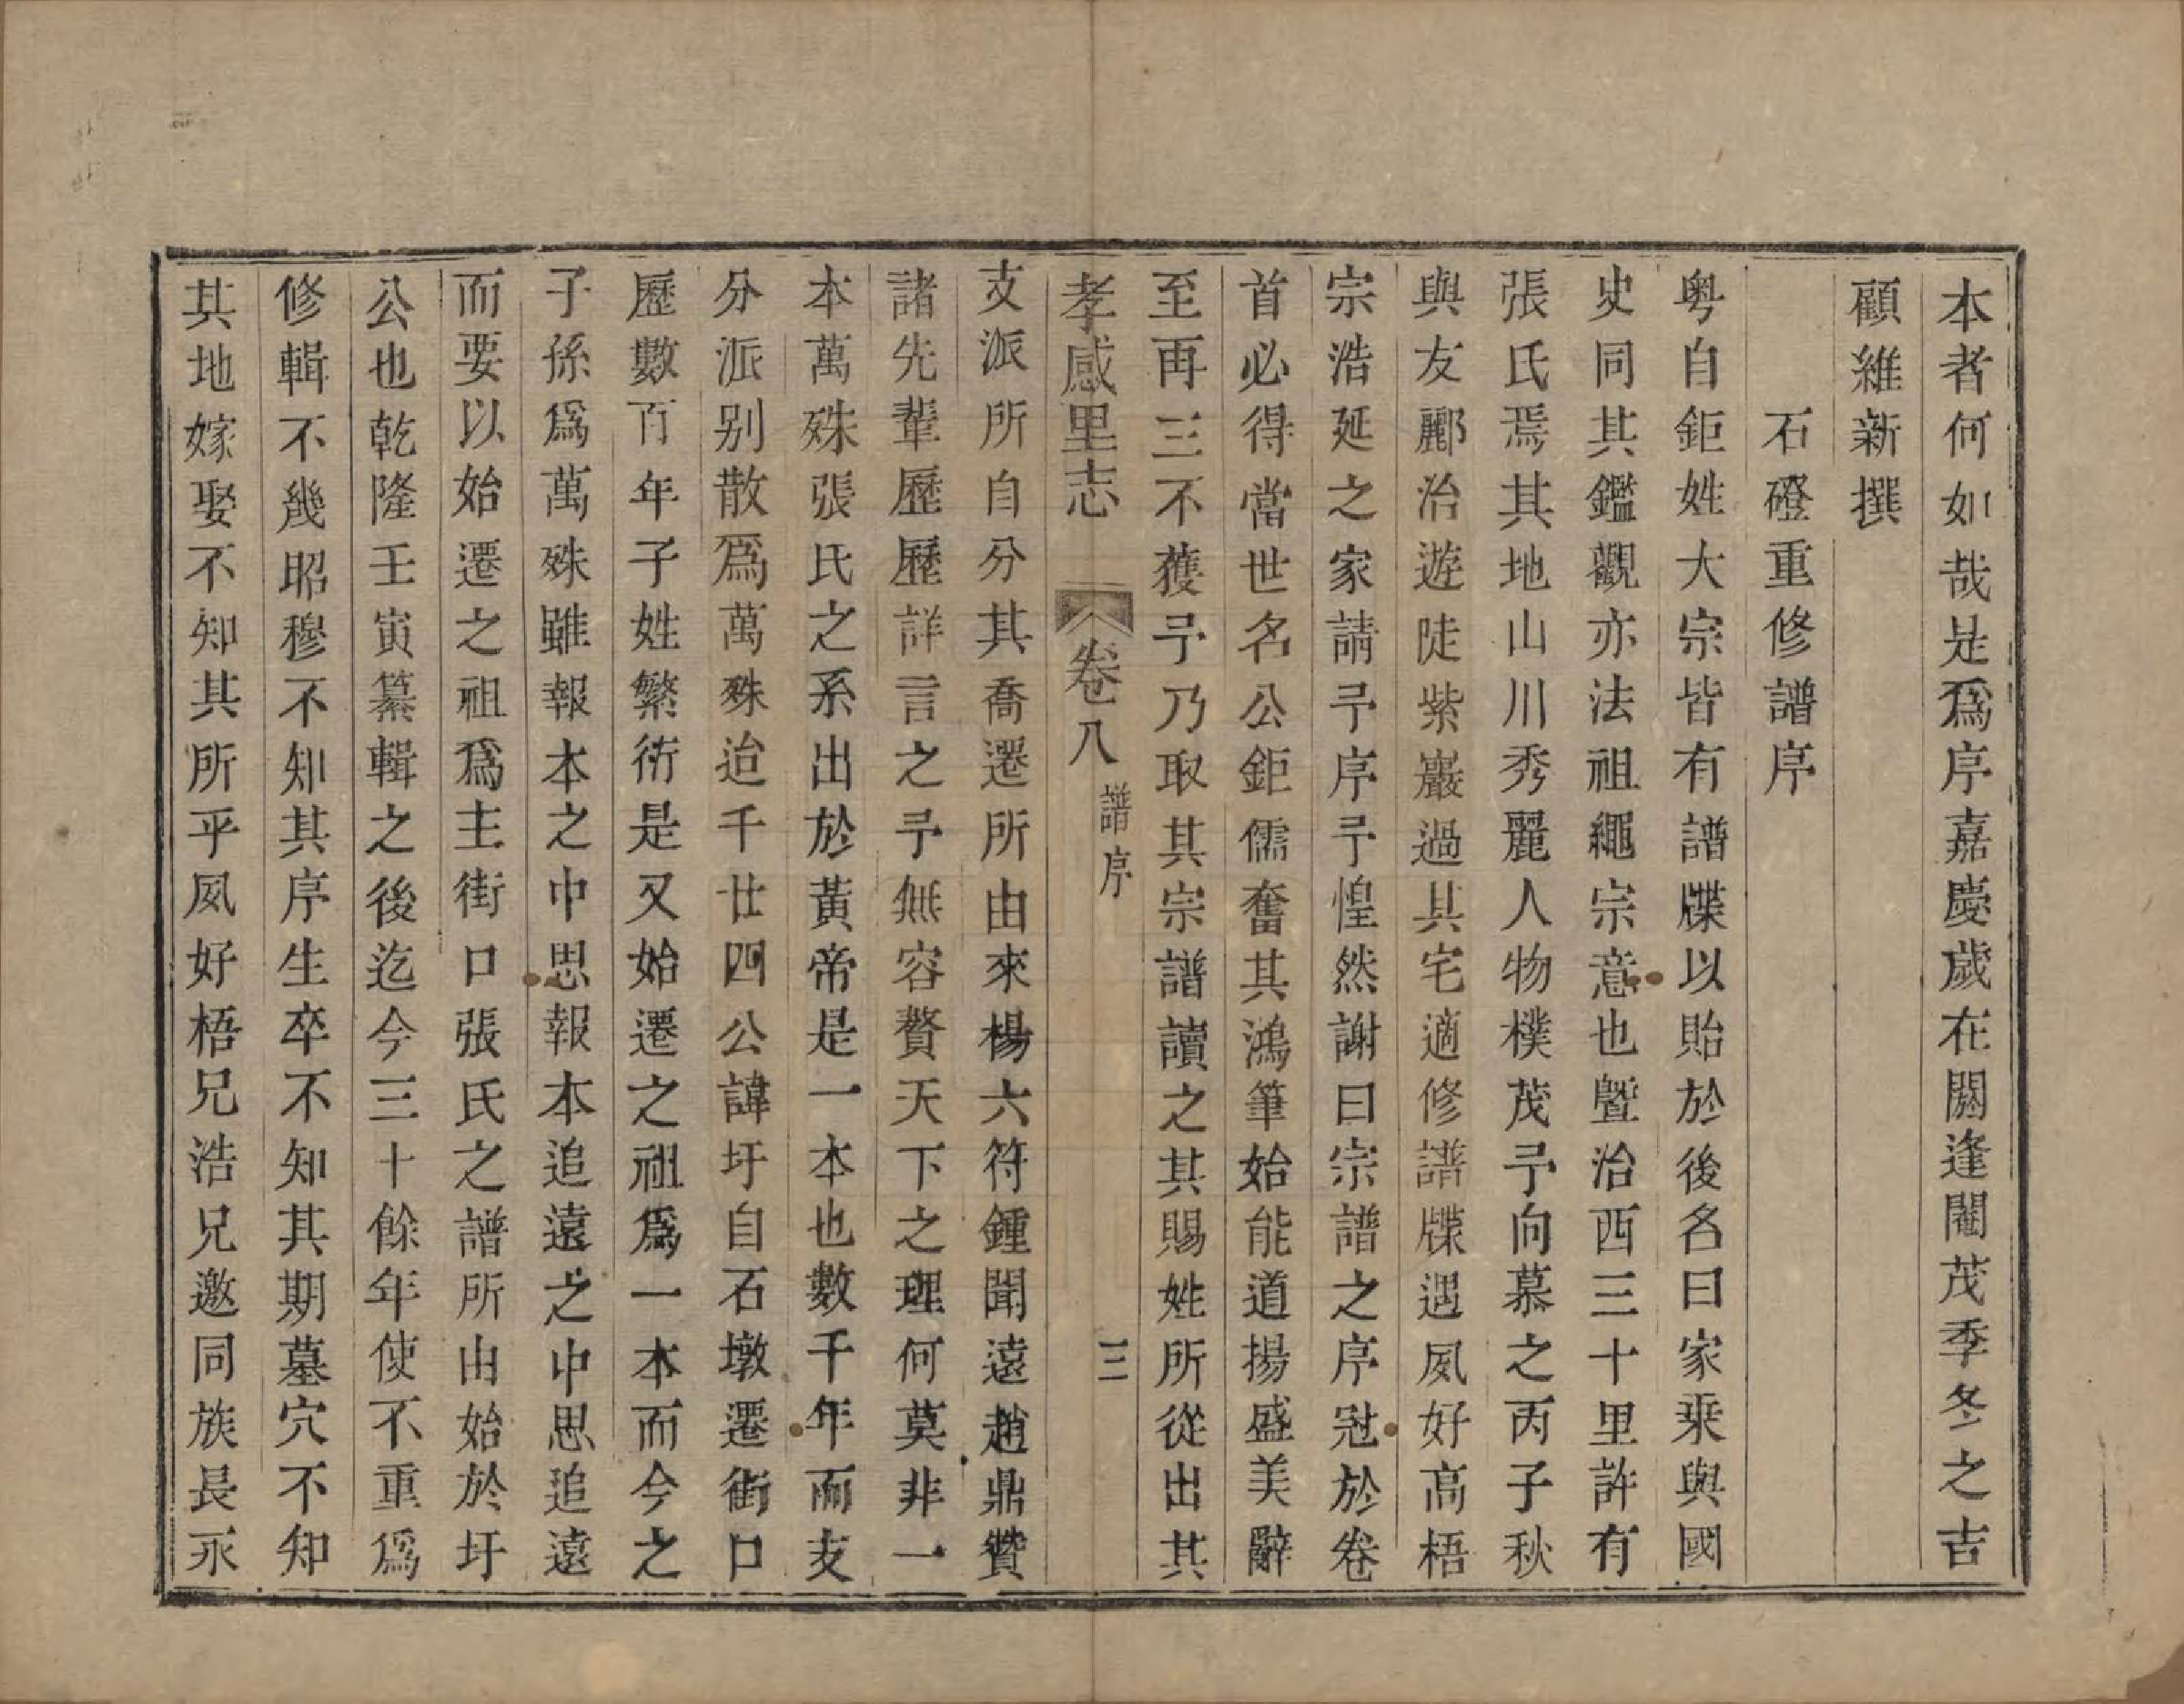 本者何如哉是爲序嘉慶歲在閼逢閹茂季冬之吉
顧維新撰
石磴重修譜序
粵自鉅姓大宗皆有譜牒以貽於後名曰家乘與國
史同其鑑觀亦法祖繩宗意也曁治西三十里許有
張氏焉其地山川秀麗人物樸茂予向慕之丙子秋
與友酈治遊陡紫巖過其宅適修譜牒遇夙好高梧
宗浩延之家請予序予惶然謝曰宗譜之序冠於卷
首必得當世名公鉅儒奮其鴻筆始能道揚盛美辭
至再三不獲予乃取其宗譜讀之其賜姓所從出其
孝感里志 卷八 譜序 三
支派所自分其喬遷所由來楊六符鍾聞遠趙鼎贊
諸先輩歷歷詳言之予無容贅天下之理何莫非一
本萬殊張氏之系出於黃帝是一本也數千年而支
分派別散爲萬殊迨千廿四公諱圩自石墩遷街口
歷數百年子姓繁衍是又始遷之祖爲一本而今之
子孫爲萬殊雖報本之中思報本追遠之中思追遠
而要以始遷之祖爲主街口張氏之譜所由始於圩
公也乾隆壬寅纂輯之後迄今三十餘年使不重爲
修輯不幾昭穆不知其序生卒不知其期墓穴不知
其地嫁娶不知其所乎夙好梧兄浩兄邀同族長永